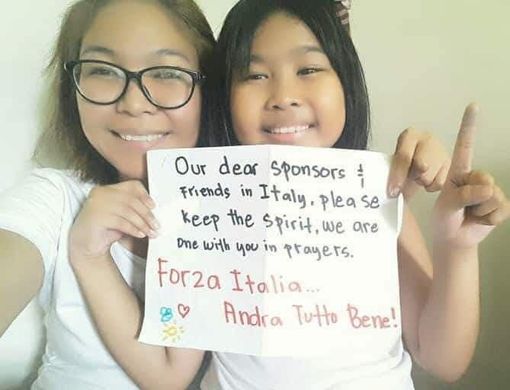 Our dear sponsors &
Friends in Italy, please
keep the spirit, we are
one with you in prayers.
Forza Italia...
Andra Tutto Bene!